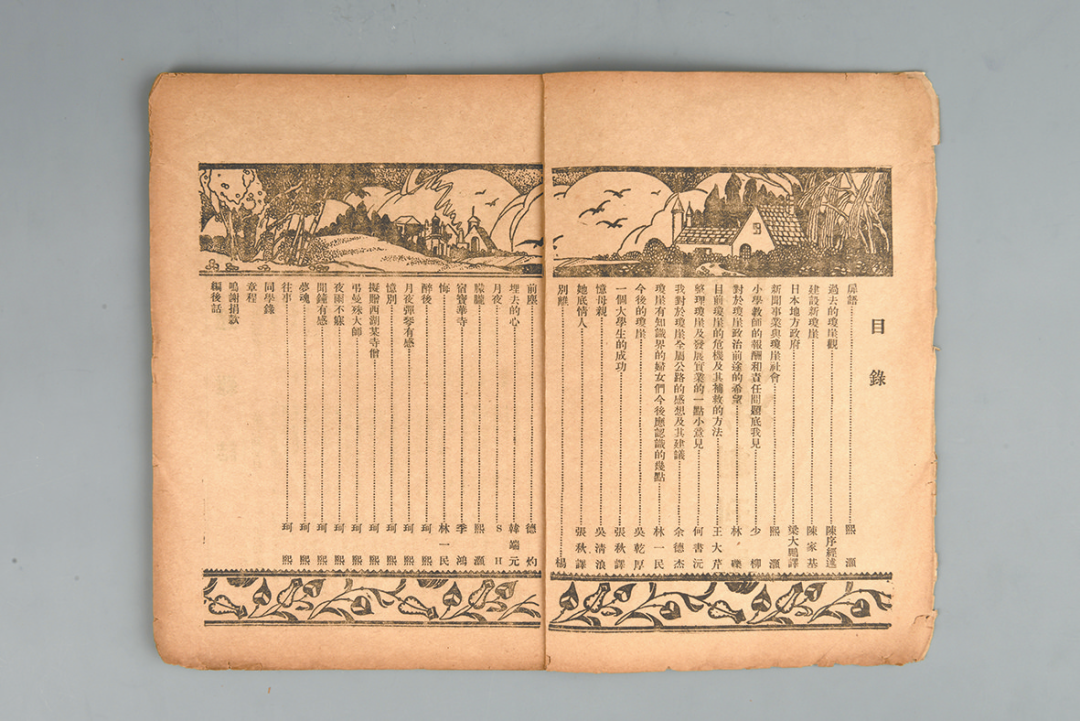 目錄
扉語 熙灝
過去的瓊崖觀 陳序經述
建設新瓊崖 陳家基
日本地方政府 梁大鵬譯
新聞事業與瓊崖社會 熙灝
小學教師的報酬和責任問題底我見 少柳
對於瓊崖政治前途的希望 林礫
目前瓊崖的危機及其補救的方法 王大芹
整理瓊崖及發展實業的一點小意見 何書沅
我對於瓊崖全屬公路的感想及其建議 余德杰
瓊崖有知識界的婦女們今後應認識的幾點 林一民
今後的瓊崖 吳乾厚
一個大學生的成功 張秋譯
憶母親 吳清浪
她底情人 張秋譯
別離 楊
前塵 德灼
埋去的心 韓端元
月夜 S H
朦朧 熙灝
宿寶華寺 季鴻
悔 林一民
醉後 珂熙
月夜彈琴有感 珂熙
憶別 珂熙
擬贈西湖某寺僧 珂熙
弔曼殊大師 珂熙
夜雨不寐 珂熙
聞鐘有感 珂熙
夢魂 珂熙
往事 珂熙
同學錄
章程
鳴謝捐款
編後話